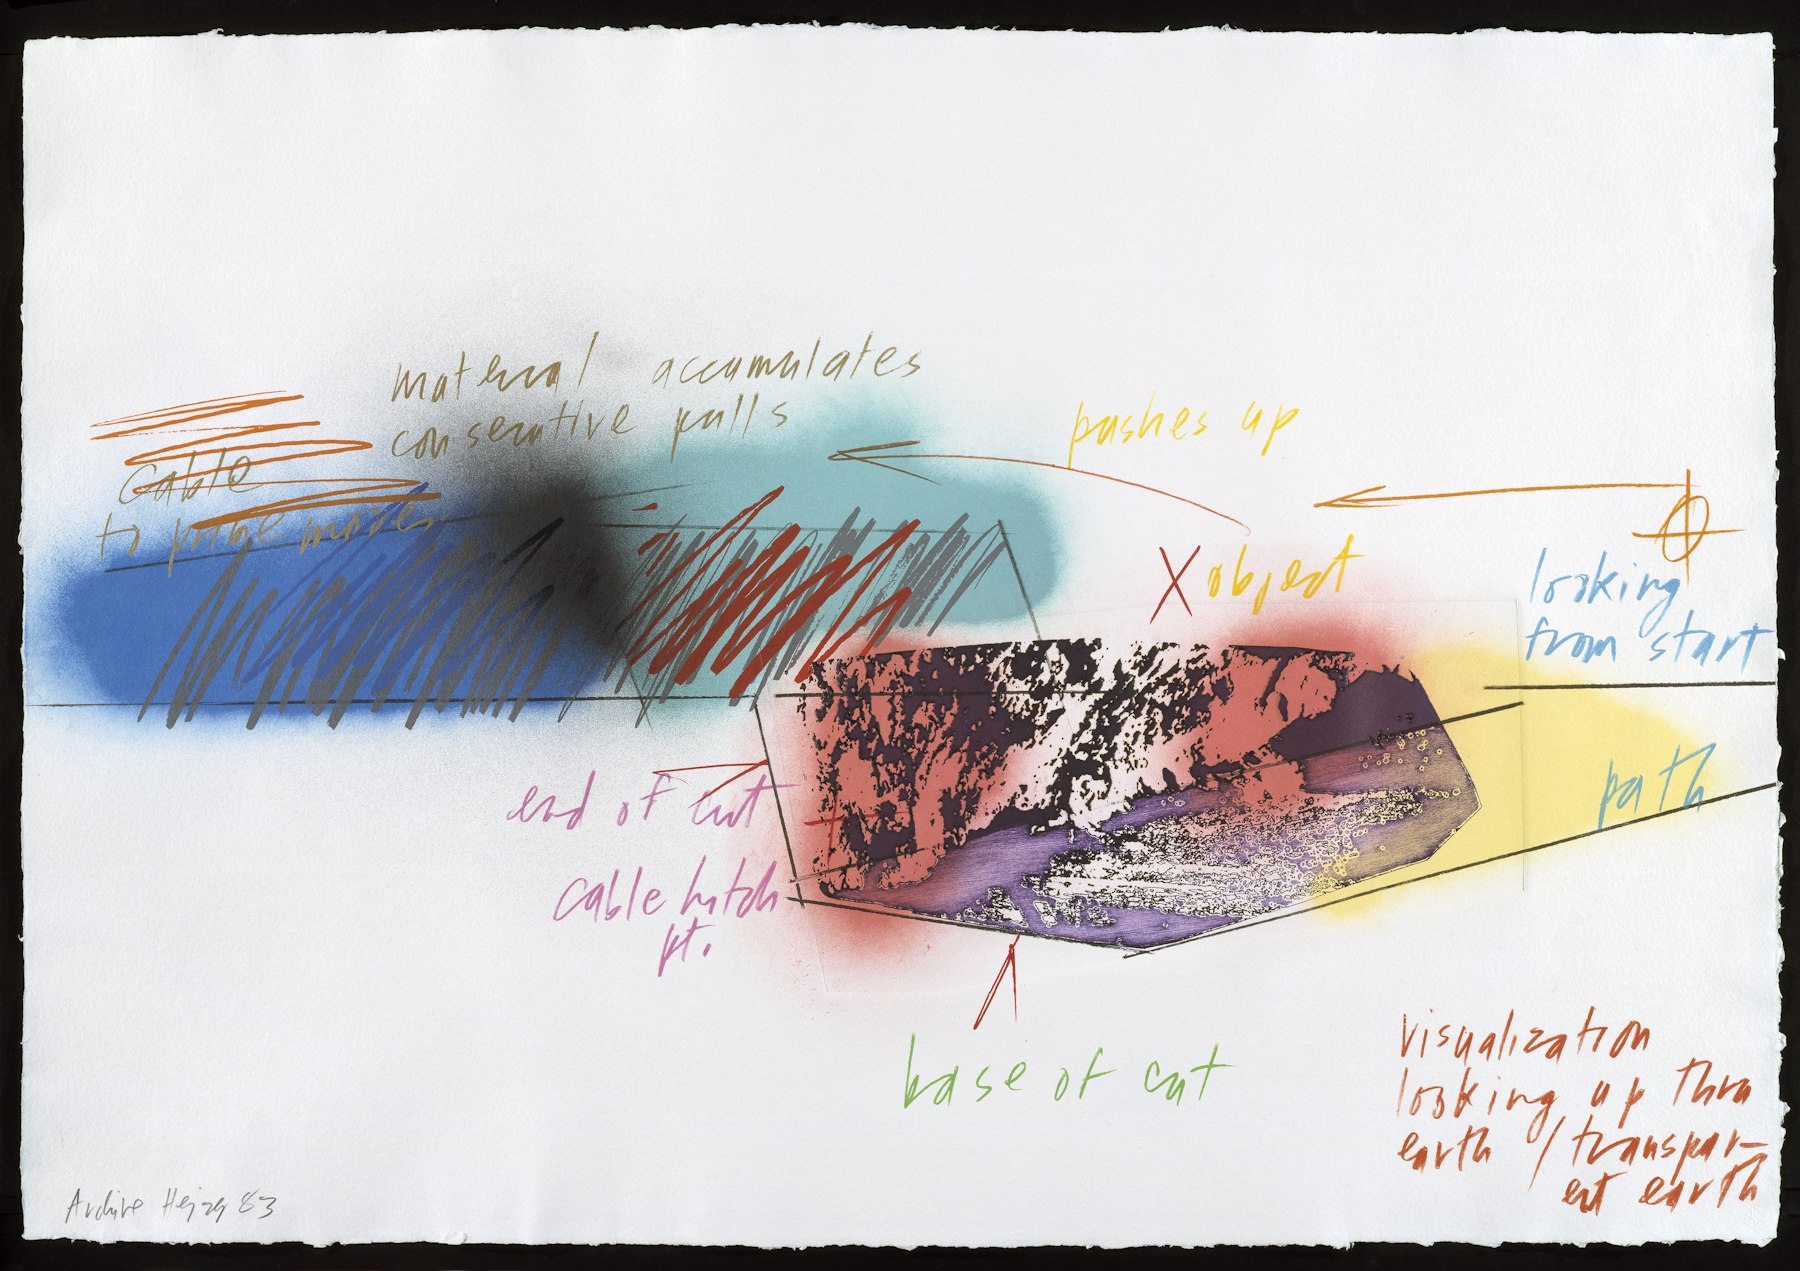 material accumulates
conserutive pulls
cable
to prime mover
pushes up
X object
looking
from start
path
end of cut
cable hitch
pt.
base of cut
visualization
looking up thru
earth / transpar-
ent earth
Archive Heizer 83